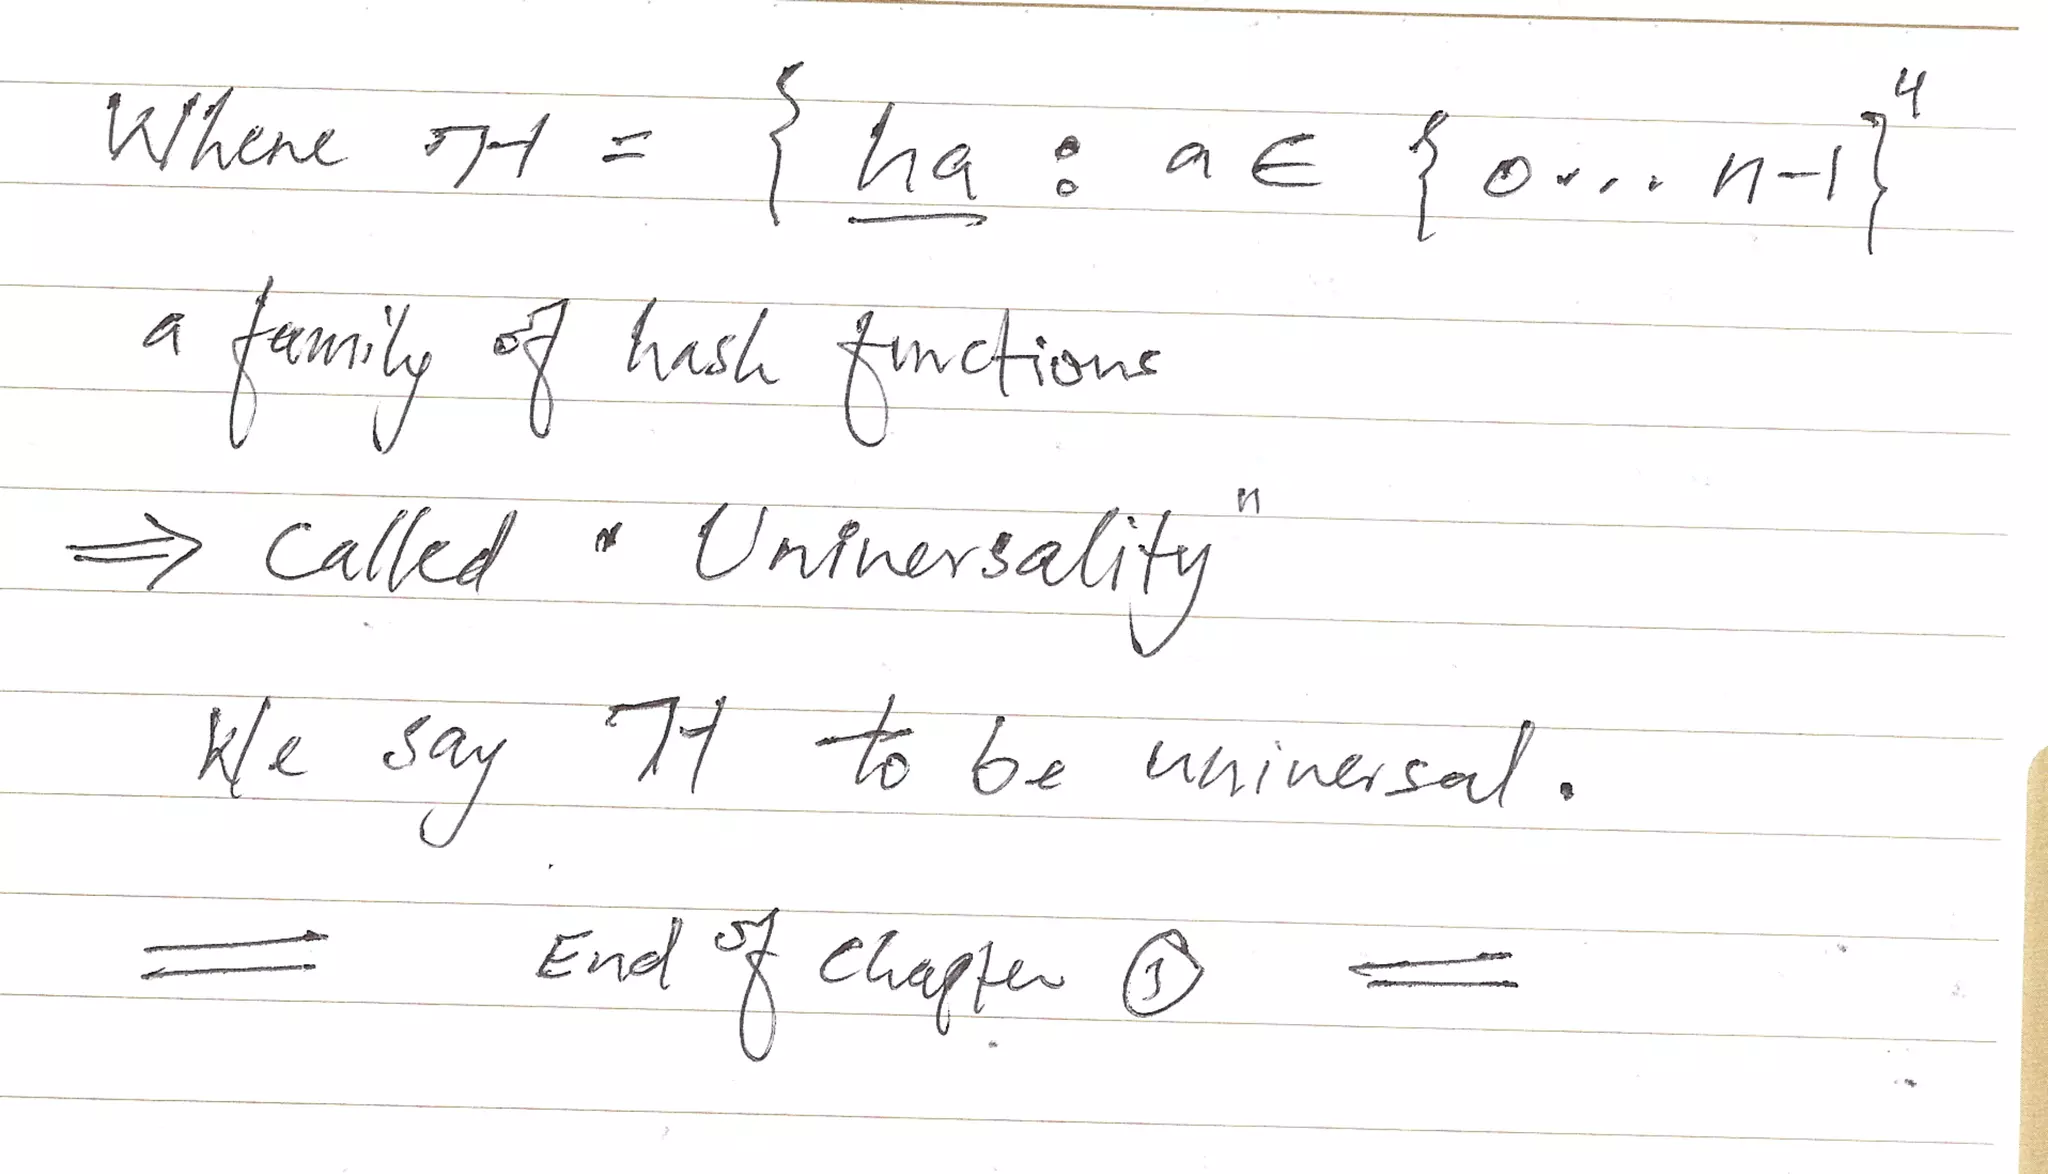 Where ℋ = { ha : a ∈ { 0 .... n-1}⁴
a family of hash functions
⇒ called "Universality"
We say ℋ to be universal.
= End of Chapter ① =